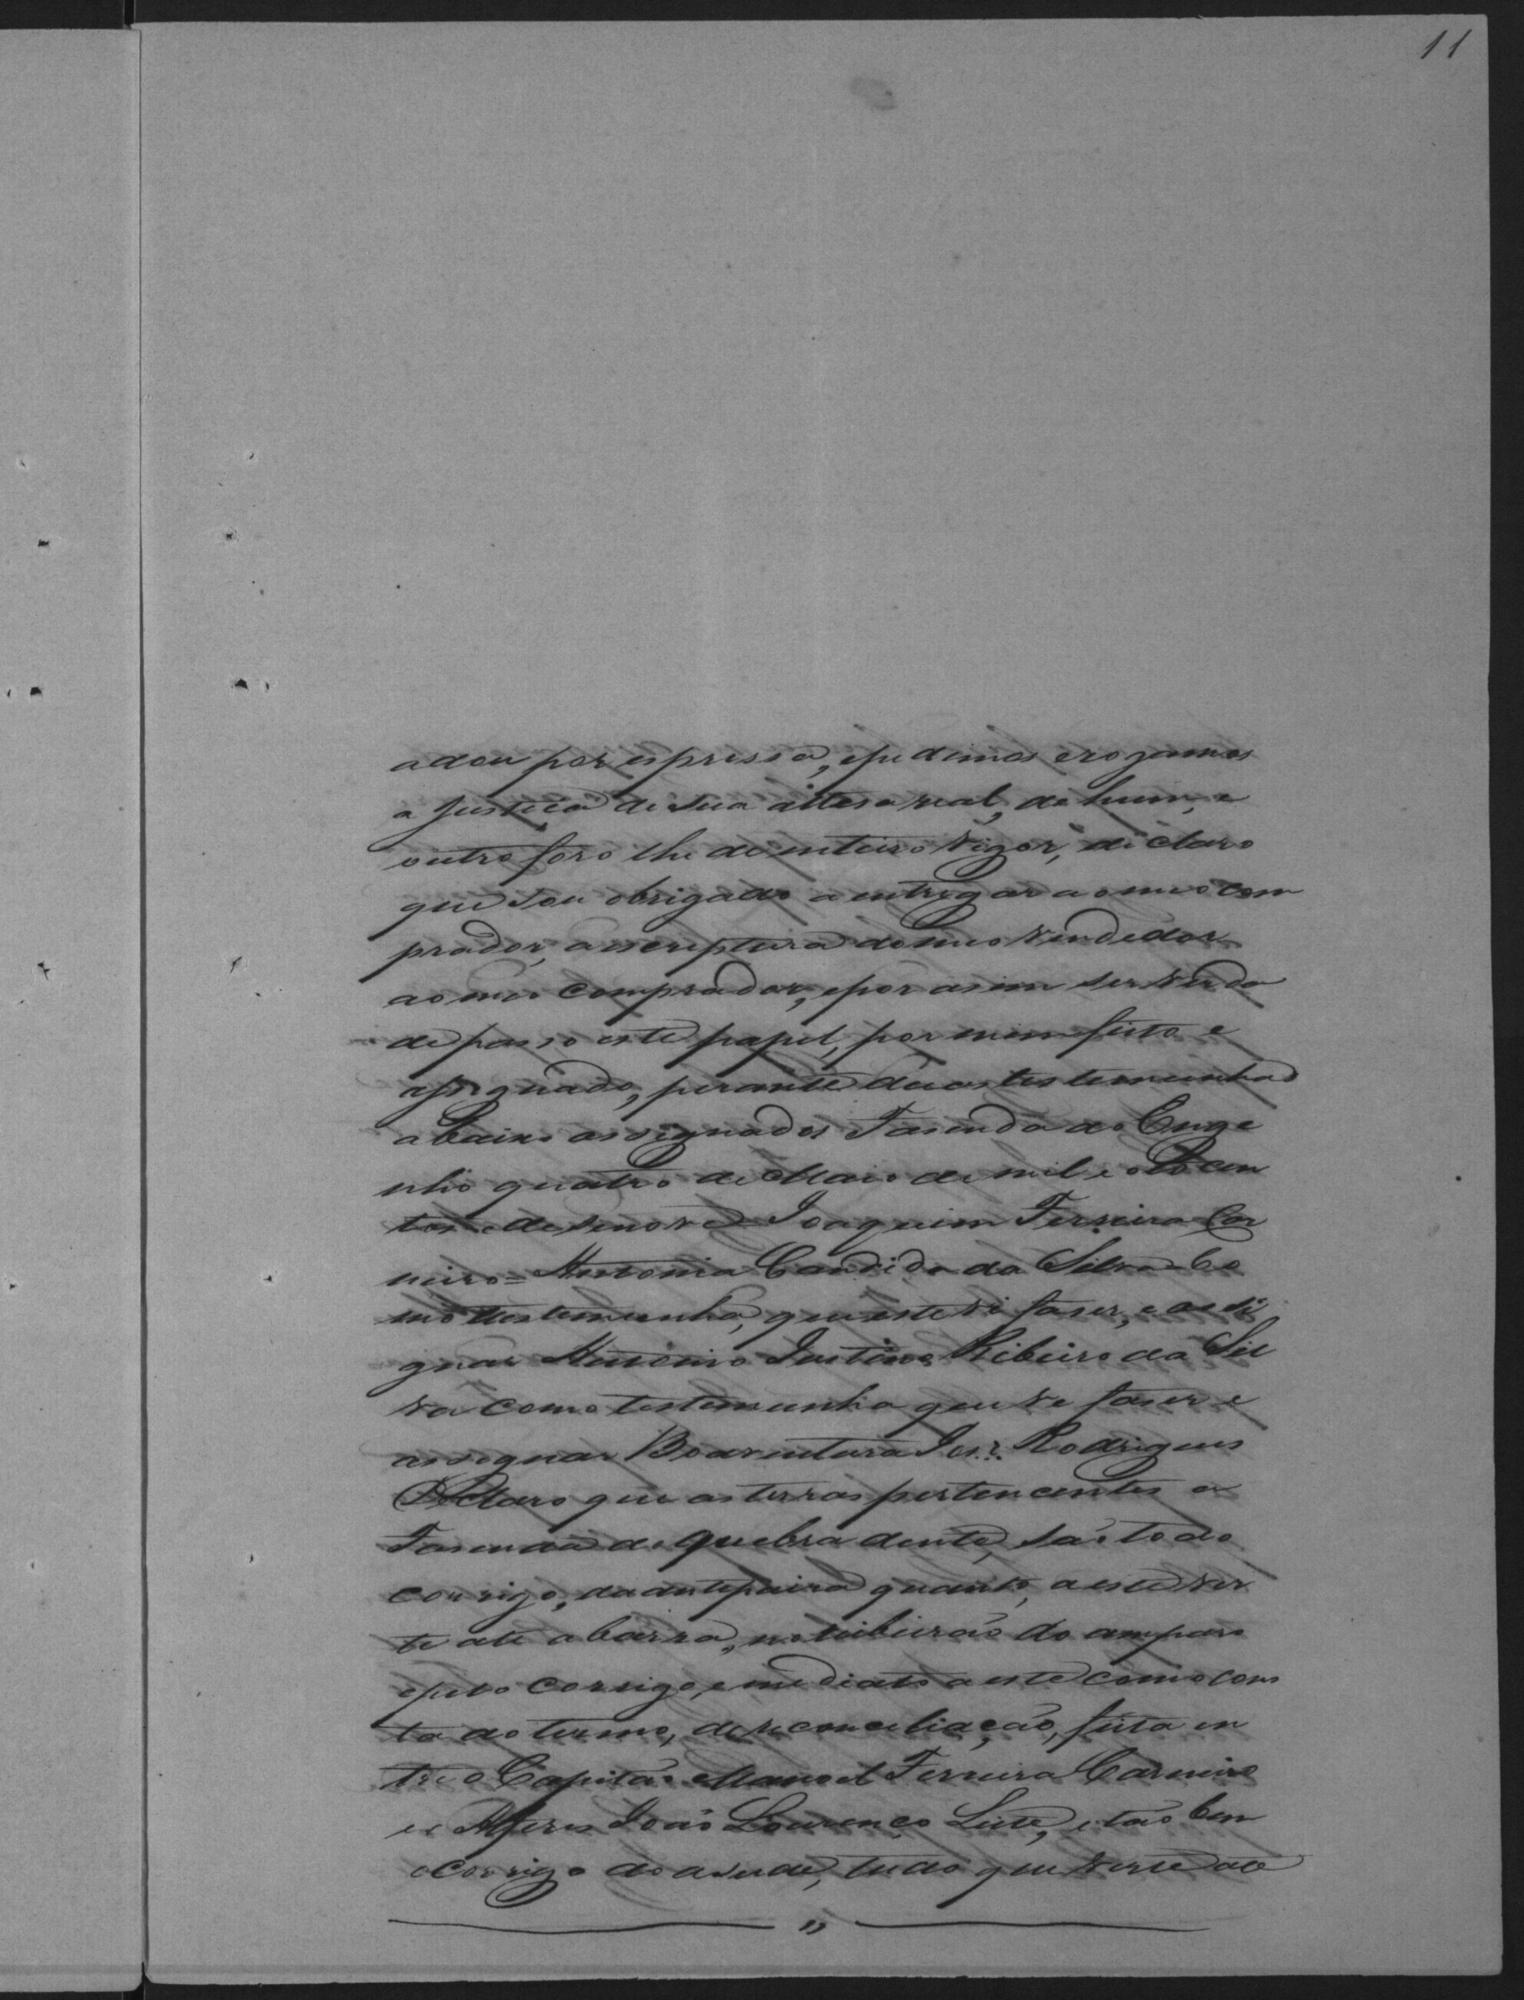 11
adou por espressa, epedimos erogamos
a Justiça de sua alteza real, de hum, e
outro foro lhe de inteiro vigor, declaro
que sou obrigado a entregar ao meo com
prador, a escriptura do meo vendedor
ao meo comprador, epor asim ser verda
de passo este papel, por mim feito e
assignado, perante duas testemunhas
abaixo assignados Fasenda do Enge
nho quatro de Maio de mil e oitocen
tos e desenove Joaquim Ferreira Car
neiro = Antonia Candida da Silva Co
mo testemunha, que este vi faser, e assi
gnar Antonio Justino Ribeiro da Sil
va como testemunha que vi faser e
assignar Boaventura José Rodrigues
Declaro que as terras pertencentes a
Fasenda de quebra dente, são todo
corrigo, da quanto, a este ver
te até a barra, no ribeirão do amparo
epelo corrigo, emediato a este como cons
ta do termo, de reconceliação, feita en
tre o Capitão Manoel Ferreira Carneiro
e o Alferes João Lourenço Leite, e tão bem
o corrigo do asude, tudo que verte ao
"